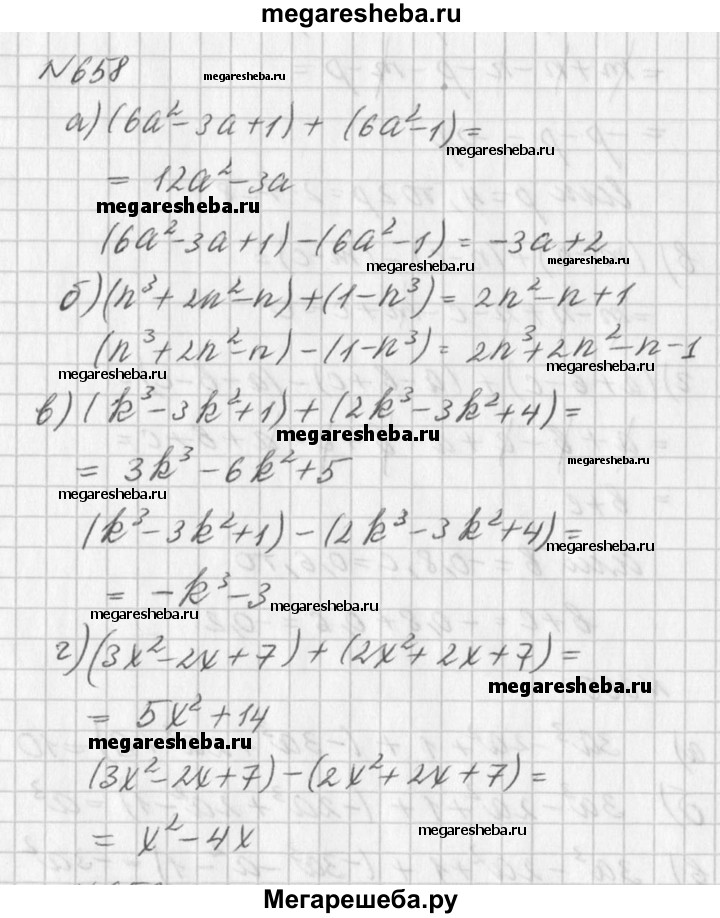 megaresheba.ru
N658
megaresheba.ru
а) (6a² - 3a + 1) + (6a² - 1) =
megaresheba.ru
= 12a² - 3a
megaresheba.ru
(6a² - 3a + 1) - (6a² - 1) = -3a + 2
megaresheba.ru megaresheba.ru
б) (n³ + 2n² - n) + (1 - n³) = 2n² - n + 1
(n³ + 2n² - n) - (1 - n³) = 2n³ + 2n² - n - 1
megaresheba.ru megaresheba.ru
в) (k³ - 3k² + 1) + (2k³ - 3k² + 4) =
megaresheba.ru
= 3k³ - 6k² + 5
megaresheba.ru
megaresheba.ru
(k³ - 3k² + 1) - (2k³ - 3k² + 4) =
megaresheba.ru
= -k³ - 3
megaresheba.ru megaresheba.ru
г) (3x² - 2x + 7) + (2x² + 2x + 7) =
megaresheba.ru
= 5x² + 14
megaresheba.ru
(3x² - 2x + 7) - (2x² + 2x + 7) =
= x² - 4x
megaresheba.ru
Мегарешеба.ру